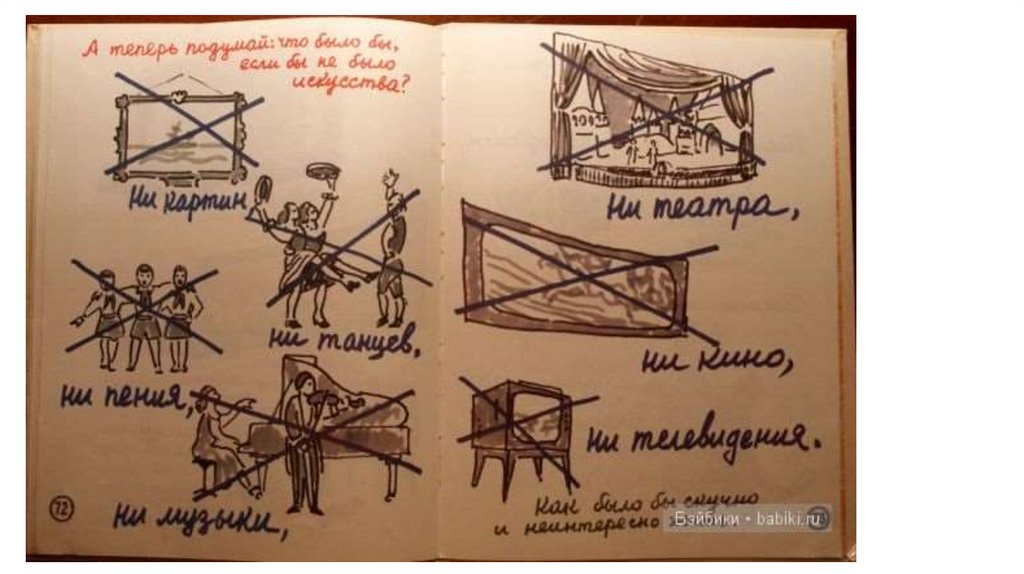 А теперь подумай: что было бы,
если бы не было
искусства?
ни картин
ни танцев,
ни пения,
ни музыки,
72
ни театра,
ни кино,
ни телевидения.
Как было бы скучно
и неинтересно
Бэйбики • babiki.ru